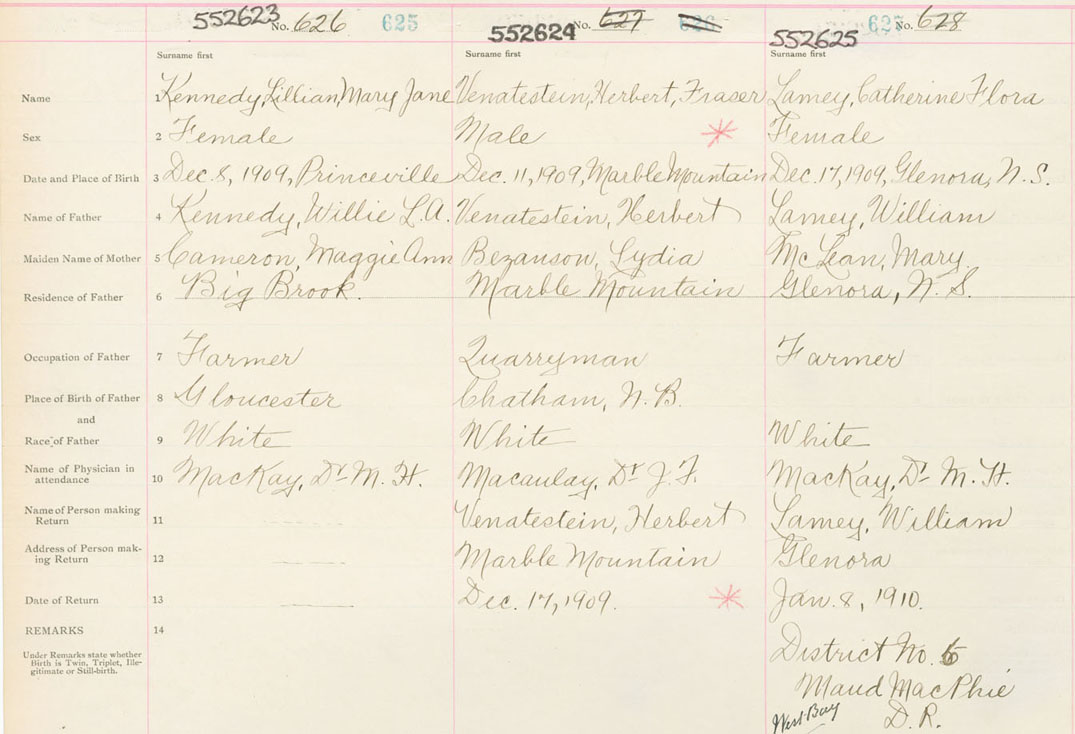 552623 No. 626 625 552624 No. 627 626 552625 627 No. 628
Surname first Surname first Surname first
Name 1 Kennedy, Lillian, Mary Jane Venatestein, Herbert, Fraser Lamey, Catherine Flora
Sex 2 Female Male Female
Date and Place of Birth 3 Dec. 8, 1909, Princeville Dec. 11, 1909, Marble Mountain Dec. 17, 1909, Glenora, N. S.
Name of Father 4 Kennedy, Willie L.A. Venatestein, Herbert Lamey, William
Maiden Name of Mother 5 Cameron, Maggie Ann Bezanson, Lydia McLean, Mary
Residence of Father 6 Big Brook. Marble Mountain Glenora, N. S.
Occupation of Father 7 Farmer Quarryman Farmer
Place of Birth of Father 8 Gloucester Chatham, N. B.
and
Race of Father 9 White White White
Name of Physician in
attendance 10 MacKay, Dr M. H. Macaulay, Dr J. F. MacKay, Dr M. H.
Name of Person making
Return 11 Venatestein, Herbert Lamey, William
Address of Person mak-
ing Return 12 Marble Mountain Glenora
Date of Return 13 Dec. 17, 1909. Jan. 8, 1910.
REMARKS 14
Under Remarks state whether
Birth is Twin, Triplet, Ille-
gitimate or Still-birth.
District No. 6
Maud MacPhie
West Bay D. R.